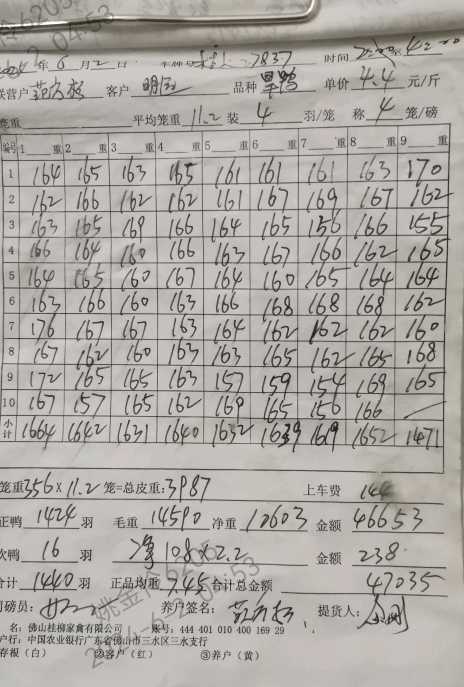 年6月2日 7837 时间
联营户 客户 明 品种 旱鸭 单价 4.4 元/斤
笼重 平均笼重 11.2 装 4 羽/笼 称 4 笼/磅
编号 1 重 2 重 3 重 4 重 5 重 6 重 7 重 8 重 9 重
1 164 165 163 165 161 161 161 163 170
2 162 166 162 162 161 167 169 167 162
3 163 165 169 166 164 165 156 166 155
4 166 164 160 166 163 167 166 162 165
5 164 165 160 167 164 160 165 164 164
6 163 166 160 163 166 168 168 168 162
7 176 167 167 163 164 162 162 162 160
8 167 162 160 163 163 165 162 165 168
9 172 165 165 163 157 159 154 169 165
10 167 157 165 162 169 165 156 166 —
小计 1664 1642 1631 1640 1632 1639 1619 1652 1471
笼重 356 × 11.2 笼=总皮重: 3987 上车费 144
正鸭 1424 羽 毛重 14590 净重 10603 金额 46653
次鸭 16 羽 净 108×2.2 金额 238
合计 1440 羽 正品均重 7.45 合计总金额 47035
司磅员: 养户签名: 提货人:
名: 佛山桂柳家禽有限公司 账号: 444 401 010 400 169 29
户行: 中国农业银行广东省佛山市三水区三水支行
存根（白） ②客户（红） ③养户（黄）